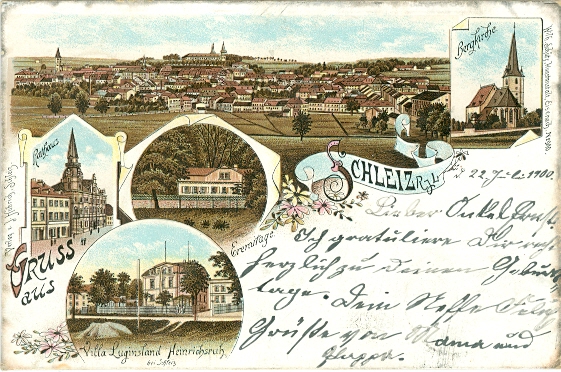 Bergkirche
Rathaus
Eremitage.
SCHLEIZ
d. 22. 1900.
GRUSS
aus
Villa Luginsland Heinrichsruh.
bei Schleiz
Lieber Onkel Ernst.
Ich gratuliere Dir recht
herzlich zu deinem Geburts
tage. Dein Neffe
Grüße von Mama und
Pappa.